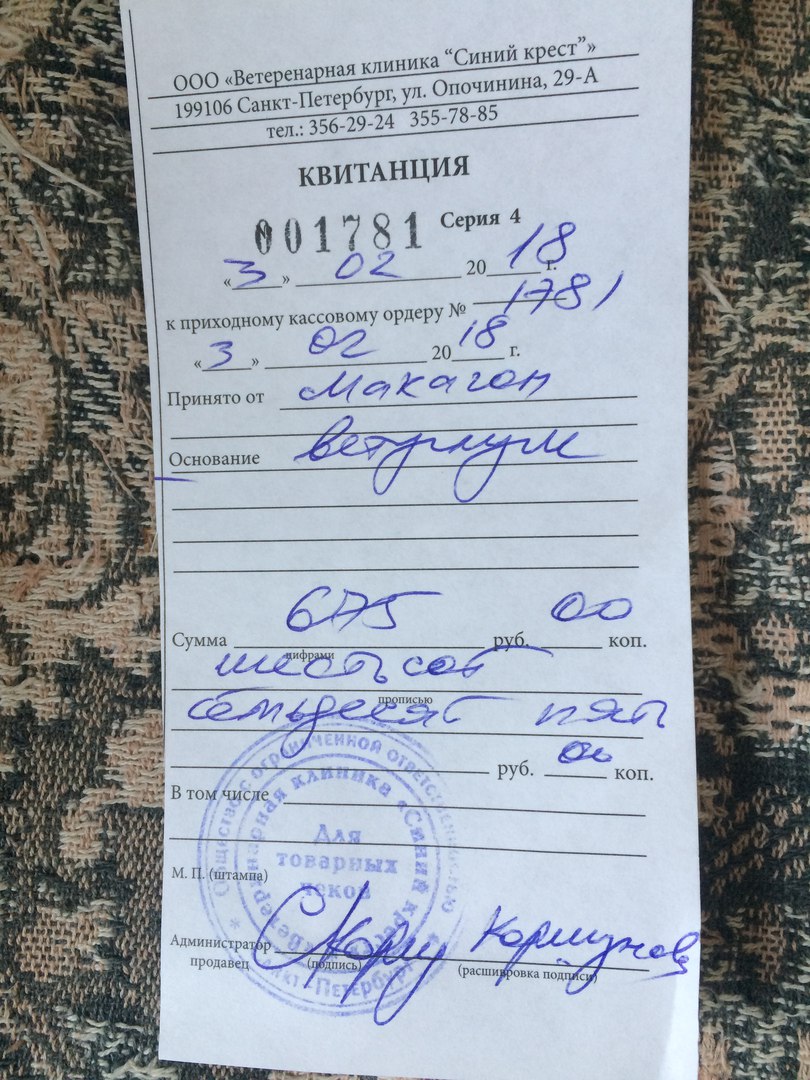 ООО «Ветеренарная клиника “Синий крест”»
199106 Санкт-Петербург, ул. Опочинина, 29-А
тел.: 356-29-24 355-78-85
КВИТАНЦИЯ
001781 Серия 4
«3» 02 2018 г.
к приходному кассовому ордеру № 1781
«3» 02 2018 г.
Принято от Макагон
Основание
Сумма 675 руб. 00 коп.
цифрами
шестьсот
прописью
семьдесят пять
руб. 00 коп.
В том числе
Общество с ограниченной ответственностью
Ветеринарная клиника «Синий крест»
Для
товарных
чеков
Санкт-Петербург
М. П. (штампа)
Администратор
продавец (подпись) (расшировка подписи)